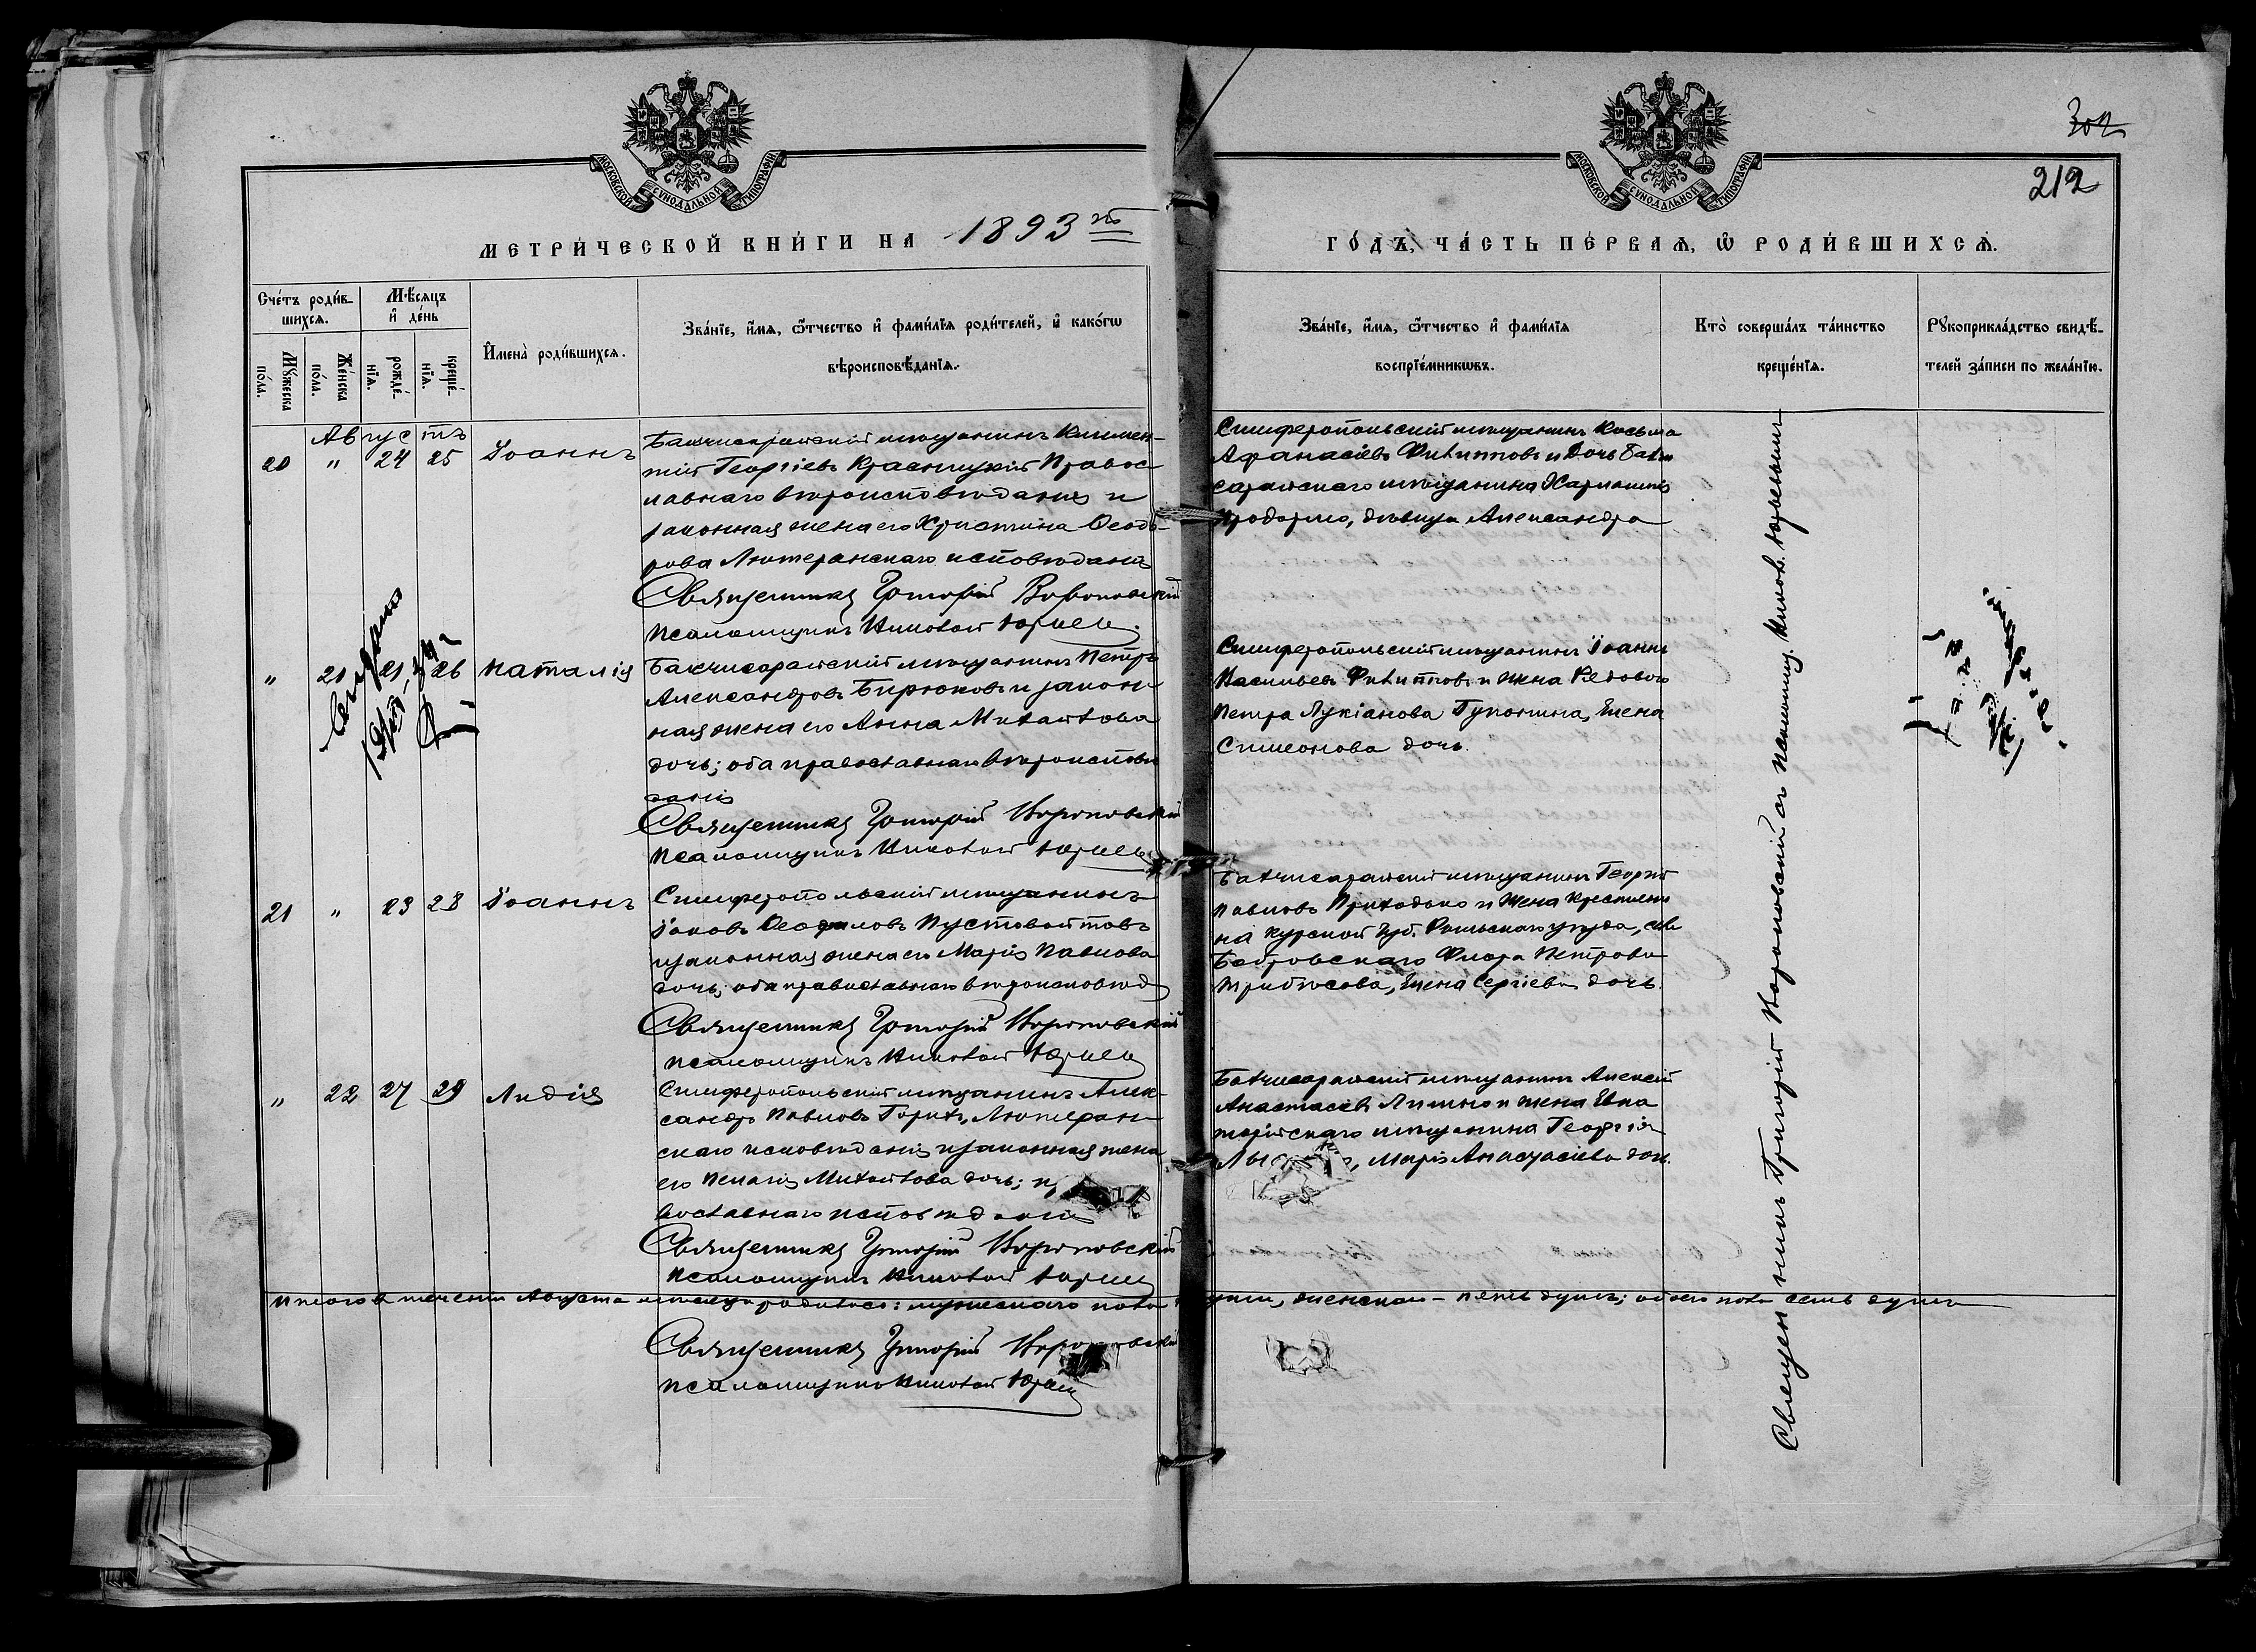 302
212
МОСКОВСКОЙ СУНОДАЛЬНОЙ ТИПОГРАФІИ
МОСКОВСКОЙ СУНОДАЛЬНОЙ ТИПОГРАФІИ
МЕТРИ́ЧЕСКОЙ КНИ́ГИ НА 1893 го́
ГО́ДЪ, ЧА́СТЬ ПЕ́РВАѦ, Ѽ РОДИ́ВШИХСѦ.
Сче́тъ роди́в-
шихся.
Мѣ́сяцъ
и҆ де́нь
Мꙋ́жеска
по́ла.
Же́нска
по́ла.
рожде́-
нїя.
креще́-
нїя.
И҆мена̀ роди́вшихся.
Зва́нїе, и҆́мя, ѻ҆́тчество и҆ фами́лїя роди́телей, и҆ како́гѡ
вѣроисповѣ́данїя.
Зва́нїе, и҆́мя, ѻ҆́тчество и҆ фами́лїя
воспрїе́мникѡвъ.
Кто̀ соверша́лъ та́инство
креще́нїя.
Рꙋкоприкла́дство свидѣ́-
телей за́писи по жела́нїю.
Августъ
20 " 24 25 Іоаннъ
Бахчисарайскій мѣщанинъ Климен-
тій Георгіевъ Красницкій Правос-
лавнаго вѣроисповѣданія и
законная жена его Христина Ѳеодо-
рова Лютеранскаго исповѣданія
Священникъ Григорій Вороновскій
Псаломщикъ Николай Юрьев
Симферопольскій мѣщанинъ Косьма
Афанасіевъ Филипповъ и Дочь Бахчи
сарайскаго мѣщанина Харлампія
Продармо, дѣвица Александра
" 21 21 26 Наталія
Бахчисарайскій мѣщанинъ Петръ
Александровъ Бирюковъ и закон-
ная жена его Анна Михайлова
дочь; оба православнаго вѣроисповѣ
данія
Священникъ Григорій Вороновскій
Псаломщикъ Николай Юрьев
Симферопольскій мѣщанинъ Іоаннъ
Васильевъ Филипповъ и жена Рядового
Петра Лукіанова Гупонина, Елена
Симеонова дочь.
21 " 23 28 Іоаннъ
Симферопольскій мѣщанинъ
Іаковъ Пустовойтовъ
и законная жена его Марія Павлова
дочь; оба православнаго вѣроисповѣд
Священникъ Григорій Вороновскій
Псаломщикъ Николай Юрьев
Бахчисарайскій мѣщанинъ Георгій
Павловъ Приходько и Жена Крестьяни
на Курской Губ. Рыльскаго уѣзда, сел.
Бобровскаго Флора Петрова
Елена Сергіева дочь.
" 22 27 29 Лидія
Симферопольскій мѣщанинъ Алек-
сандръ Павловъ Лютеран-
скаго исповѣданія и законная жена
его Пелагія Михайлова дочь; п
вославнаго исповѣданія
Священникъ Григорій Вороновскій
Псаломщикъ Николай Юрьев
Бахчисарайскій мѣщанинъ Алексѣй
Анастасіевъ и жена Евпа
торійскаго мѣщанина Георгія
Марія Анастасіева доч.
Итого в теченіи Августа мѣсяца родилось: мужескаго пола души, женскаго – пять душъ; обоего пола семь душъ
Священникъ Григорій Вороновскій
Псаломщикъ Николай Юрьев
Священникъ Григорій Вороновскій съ псаломщ. Никол. Юрьевымъ